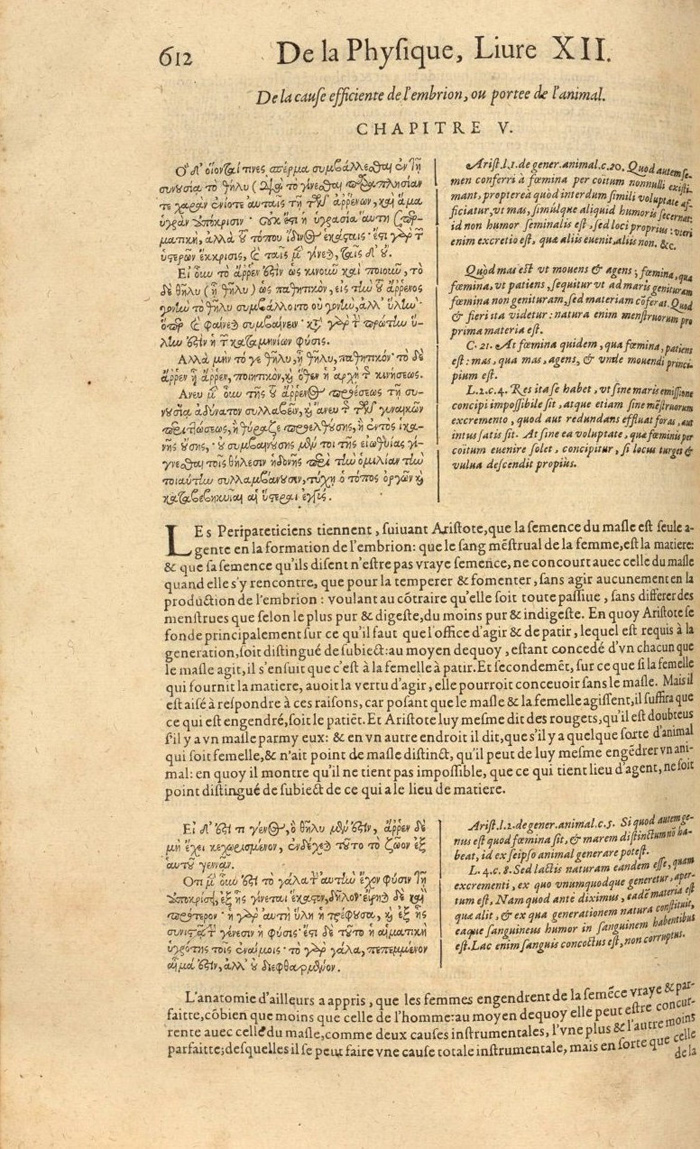 612 De la Phyſique, Liure XII.
De la cauſe efficiente de l'embrion, ou portee de l'animal.
CHAPITRE V.
Οἱ δ' οἴονταί τινες σπέρμα συμβάλλεσθαι ἐν τῇ
συνουσίᾳ τὸ θῆλυ (διὰ τὸ γίνεσθαι παραπλησίαν
τε χαρὰν ἐνίοτε αὐταῖς τῇ τῶν ἀῤῥένων, καὶ ἅμα
ὑγρὰν ὑπόκρισιν· οὐκ ἔστι ἡ ὑγρασία αὕτη σπερ-
ματικὴ, ἀλλὰ τοῦ τόπου ἴδιος ἑκάσταις· ἔστι γὰρ τῶν
ὑστερῶν ἔκκρισις, καὶ ταῖς μὲν γίνεται, ταῖς δ' οὔ.
Εἰ οὖν τὸ ἄῤῥεν ἐστὶν ὡς κινοῦν καὶ ποιοῦν, τὸ
δὲ θῆλυ (ᾗ θῆλυ) ὡς παθητικὸν, εἰς τὴν τοῦ ἄῤῥενος
γονὴν τὸ θῆλυ συμβάλλοιτο οὐ γονὴν, ἀλλ' ὕλην·
ὅπερ καὶ φαίνεται συμβαίνειν· κατὰ γὰρ τὴν πρώτην ὕ-
λην ἐστὶν ἡ τῶν καταμηνίων φύσις.
Ἀλλὰ μὴν τό γε θῆλυ, ᾗ θῆλυ, παθητικόν· τὸ δὲ
ἄῤῥεν ᾗ ἄῤῥεν, ποιητικὸν, καὶ ὅθεν ἡ ἀρχὴ τῆς κινήσεως.
Ἄνευ μὲν οὖν τῆς τοῦ ἄῤῥενος προέσεως τῇ συ-
νουσίᾳ ἀδύνατον συλλαβεῖν, καὶ ἄνευ τῆς τῶν γυναικῶν
περιττώσεως, ἢ θύραζε προελθούσης, ἢ ἐντὸς ἱκα-
νῆς οὔσης· οὐ συμβαινούσης μέν τοι τῆς εἰωθυίας γί-
γνεσθαι τοῖς θήλεσιν ἡδονῆς περὶ τὴν ὁμιλίαν τὴν
τοιαύτην συλλαμβάνουσιν, τύχῃ ὁ τόπος ὀργῶν καὶ
καταβεβηκυῖαι αἱ ὑστέραι ἐγγύς.
Ariſt.l.1.de gener.animal.c.20. Quod autem ſe-
men conferri à fœmina per coitum nonnulli exiſti-
mant, propterea quòd interdum ſimili voluptate af-
ficiatur, vt mas, ſimúlque aliquid humoris ſecernat;
id non humor ſeminalis eſt, ſed loci proprius: vteri
enim excretio eſt, quæ alüs euenit, alüs non. &c.
Quòd mas eſt vt mouens & agens; fœmina, qua
fœmina, vt patiens, ſequitur vt ad maris genituram
fœmina non genituram, ſed materiam cõferat. Quod
& fieri ita videtur: natura enim menſtruorum pro
prima materia eſt.
C. 21. At fœmina quidem, qua fœmina, patiens
eſt: mas, qua mas, agens, & vnde mouendi princi-
pium eſt.
L.2.c.4. Res ita ſe habet, vt ſine maris emiſſione
concipi impoſſibile ſit, atque etiam ſine mẽſtruorum
excremento, quod aut redundans effluat foras, aut
intus ſatis ſit. At ſine ea voluptate, quæ fœminis per
coïtum euenire ſolet, concipitur, ſi locus turget &
vulua deſcendit propius.
LEs Peripateticiens tiennent, ſuiuant Ariſtote, que la ſemence du maſle eſt ſeule a-
gente en la formation de l'embrion: que le ſang mẽſtrual de la femme, eſt la matiere:
& que ſa ſemence qu'ils diſent n'eſtre pas vraye ſemence, ne concourt auec celle du maſle
quand elle s'y rencontre, que pour la temperer & fomenter, ſans agir aucunement en la
production de l'embrion: voulant au cõtraire qu'elle ſoit toute paſſiue, ſans differer des
menſtrues que ſelon le plus pur & digeſte, du moins pur & indigeſte. En quoy Ariſtote ſe
fonde principalement ſur ce qu'il faut que l'office d'agir & de patir, lequel eſt requis à la
generation, ſoit diſtingué de ſubiect: au moyen dequoy, eſtant concedé d'vn chacun que
le maſle agit, il s'enſuit que c'eſt à la femelle à patir. Et ſecondemẽt, ſur ce que ſi la femelle
qui fournit la matiere, auoit la vertu d'agir, elle pourroit conceuoir ſans le maſle. Mais il
eſt aiſé à reſpondre à ces raiſons, car poſant que le maſle & la femelle agiſſent, il ſuffira que
ce qui eſt engendré, ſoit le patiẽt. Et Ariſtote luy meſme dit des rougets, qu'il eſt doubteus
s'il y a vn maſle parmy eux: & en vn autre endroit il dit, que s'il y a quelque ſorte d'animal
qui ſoit femelle, & n'ait point de maſle diſtinct, qu'il peut de luy meſme engẽdrer vn ani-
mal: en quoy il montre qu'il ne tient pas impoſſible, que ce qui tient lieu d'agent, ne ſoit
point diſtingué de ſubiect de ce qui a le lieu de matiere.
Εἰ δ' ἐστί τι γένος, ὃ θῆλυ μέν ἐστιν, ἄῤῥεν δὲ
μὴ ἔχει κεχωρισμένον, ἐνδέχεται τοῦτο τὸ ζῶον ἐξ
αὐτοῦ γεννᾶν.
Ὅτι μὲν οὖν ἐστὶ τὸ γάλα τὴν αὐτὴν ἔχον φύσιν τῇ
ὑποκρίσει, ἐξ ἧς γίνεται ἕκαστον, δῆλον· εἴρηται δὲ καὶ
πρότερον· ἡ γὰρ αὐτὴ ὕλη ἡ τρέφουσα, καὶ ἐξ ἧς
συνίστησι τὴν γένεσιν ἡ φύσις· ἔστι δὲ τοῦτο ἡ αἱματικὴ
ὑγρότης τοῖς ἐναίμοις· τὸ γὰρ γάλα, πεπεμμένον
αἷμά ἐστιν, ἀλλ' οὐ διεφθαρμένον.
Ariſt.l.2.de gener.animal.c.5. Si quod autem ge-
nus eſt quod fœmina ſit, & marem diſtinctum nõ ha-
beat, id ex ſeipſo animal generare poteſt.
L.4.c.8. Sed lactis naturam eandem eſſe, quam
excrementi, ex quo vnumquodque generetur, aper-
tum eſt, Nam quod ante diximus, eadẽ materia eſt
quæ alit, & ex qua generationem natura conſtituit,
eaque ſanguineus humor in ſanguinem habentibus
eſt. Lac enim ſanguis concoctus eſt, non corruptus.
L'anatomie d'ailleurs a appris, que les femmes engendrent de la ſemẽce vraye & par-
faitte, cõbien que moins que celle de l'homme: au moyen dequoy elle peut eſtre concur-
rente auec celle du maſle, comme deux cauſes inſtrumentales, l'vne plus & l'autre moins
parfaitte; deſquelles il ſe peut faire vne cauſe totale inſtrumentale, mais en ſorte que celle
de la